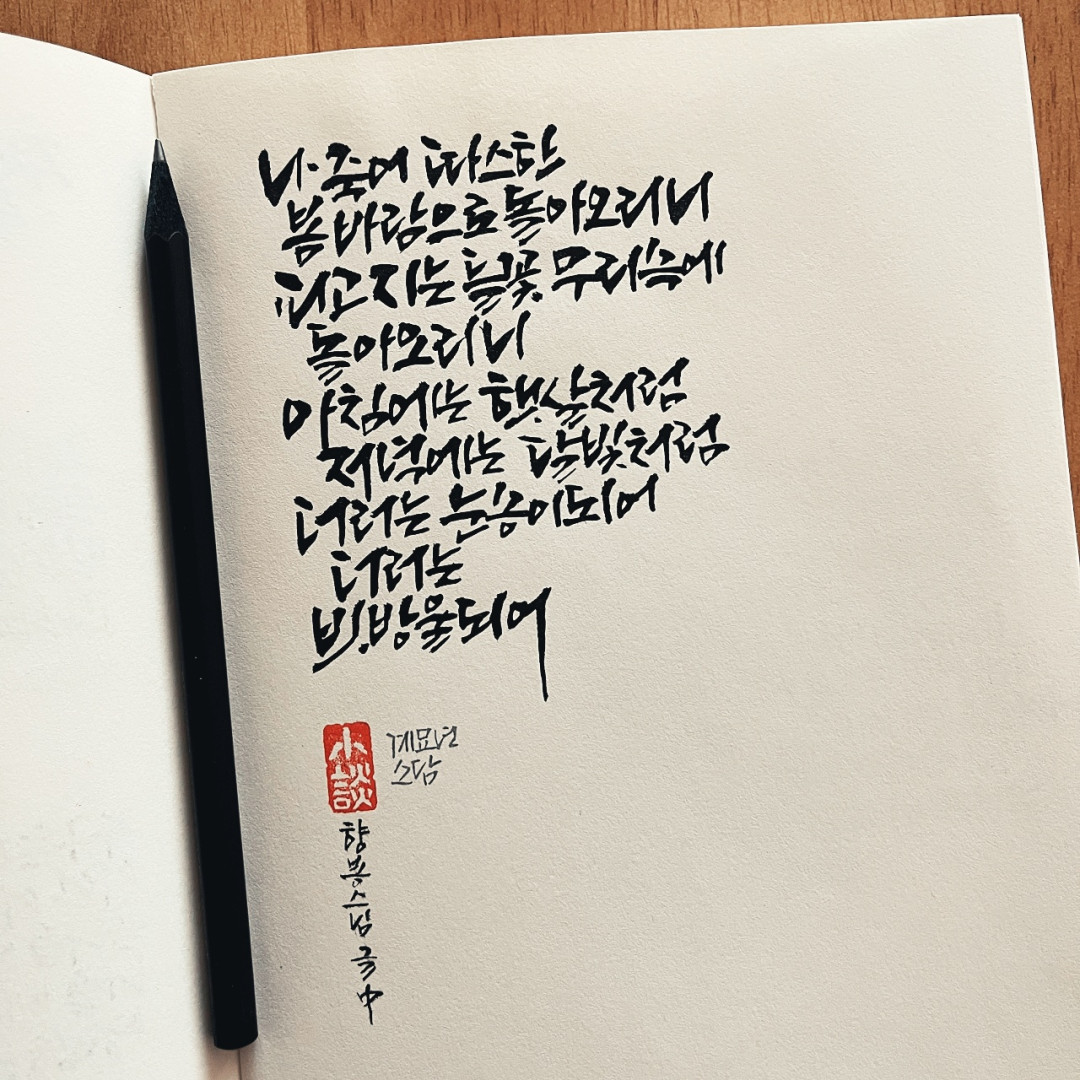 나 죽어 따스한
봄바람으로 돌아오리니
피고 지는 들꽃 무리속에
돌아오리니
아침에는 햇살처럼
저녁에는 달빛처럼
더러는 눈송이 되어
더러는
빗방울 되어
小談
계묘년
소담
향봉스님 글 中